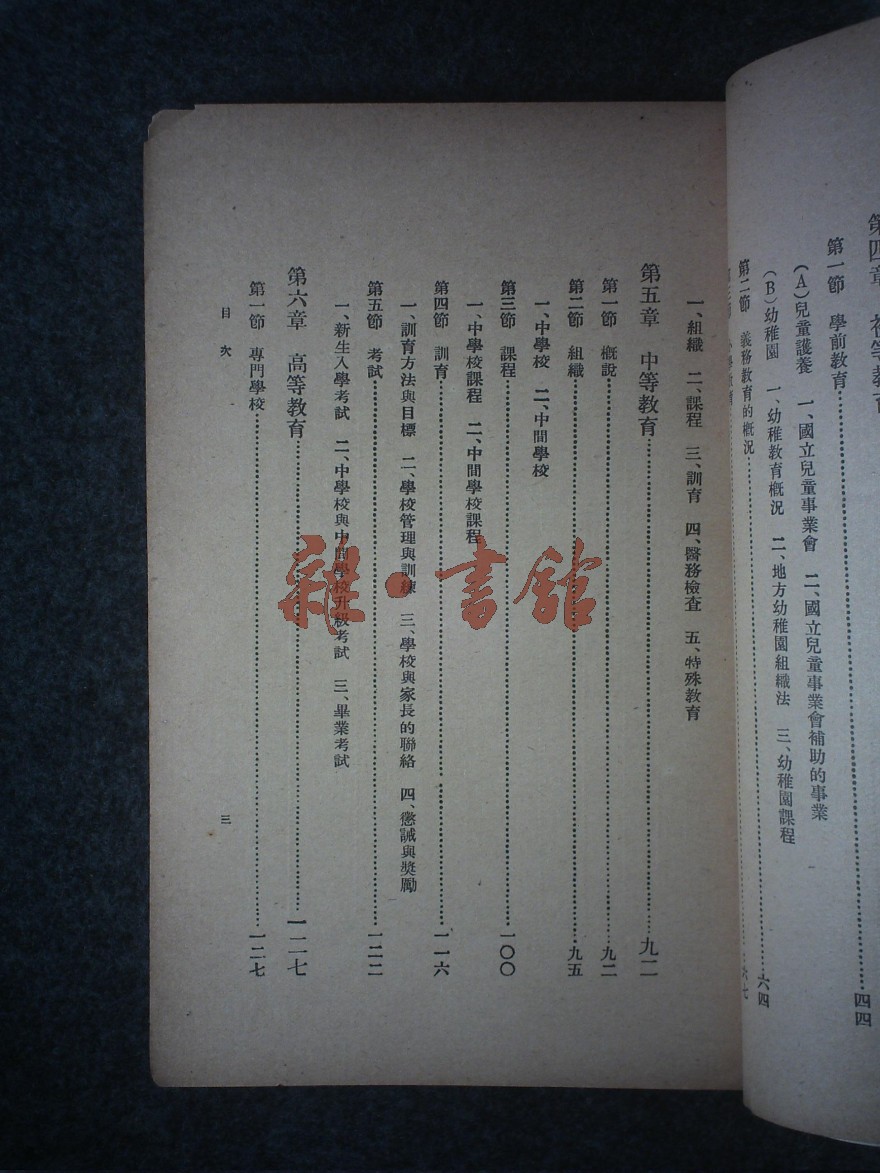 第四章 初等教育
第一節 學前教育……四四
(A)兒童護養 一、國立兒童事業會 二、國立兒童事業會補助的事業
(B)幼稚園 一、幼稚教育概況 二、地方幼稚園組織法 三、幼稚園課程
第二節 義務教育的概況……六四
六七
一、組織 二、課程 三、訓育 四、醫務檢查 五、特殊教育
第五章 中等教育……九二
第一節 概說……九二
第二節 組織……九五
一、中學校 二、中間學校
第三節 課程……一〇〇
一、中學校課程 二、中間學校課程
第四節 訓育……一一六
一、訓育方法與目標 二、學校管理與訓練 三、學校與家長的聯絡 四、懲誡與獎勵
第五節 考試……一二二
一、新生入學考試 二、中學校與中間學校升級考試 三、畢業考試
第六章 高等教育……一二七
第一節 專門學校……一二七
目次
三
雜·書館